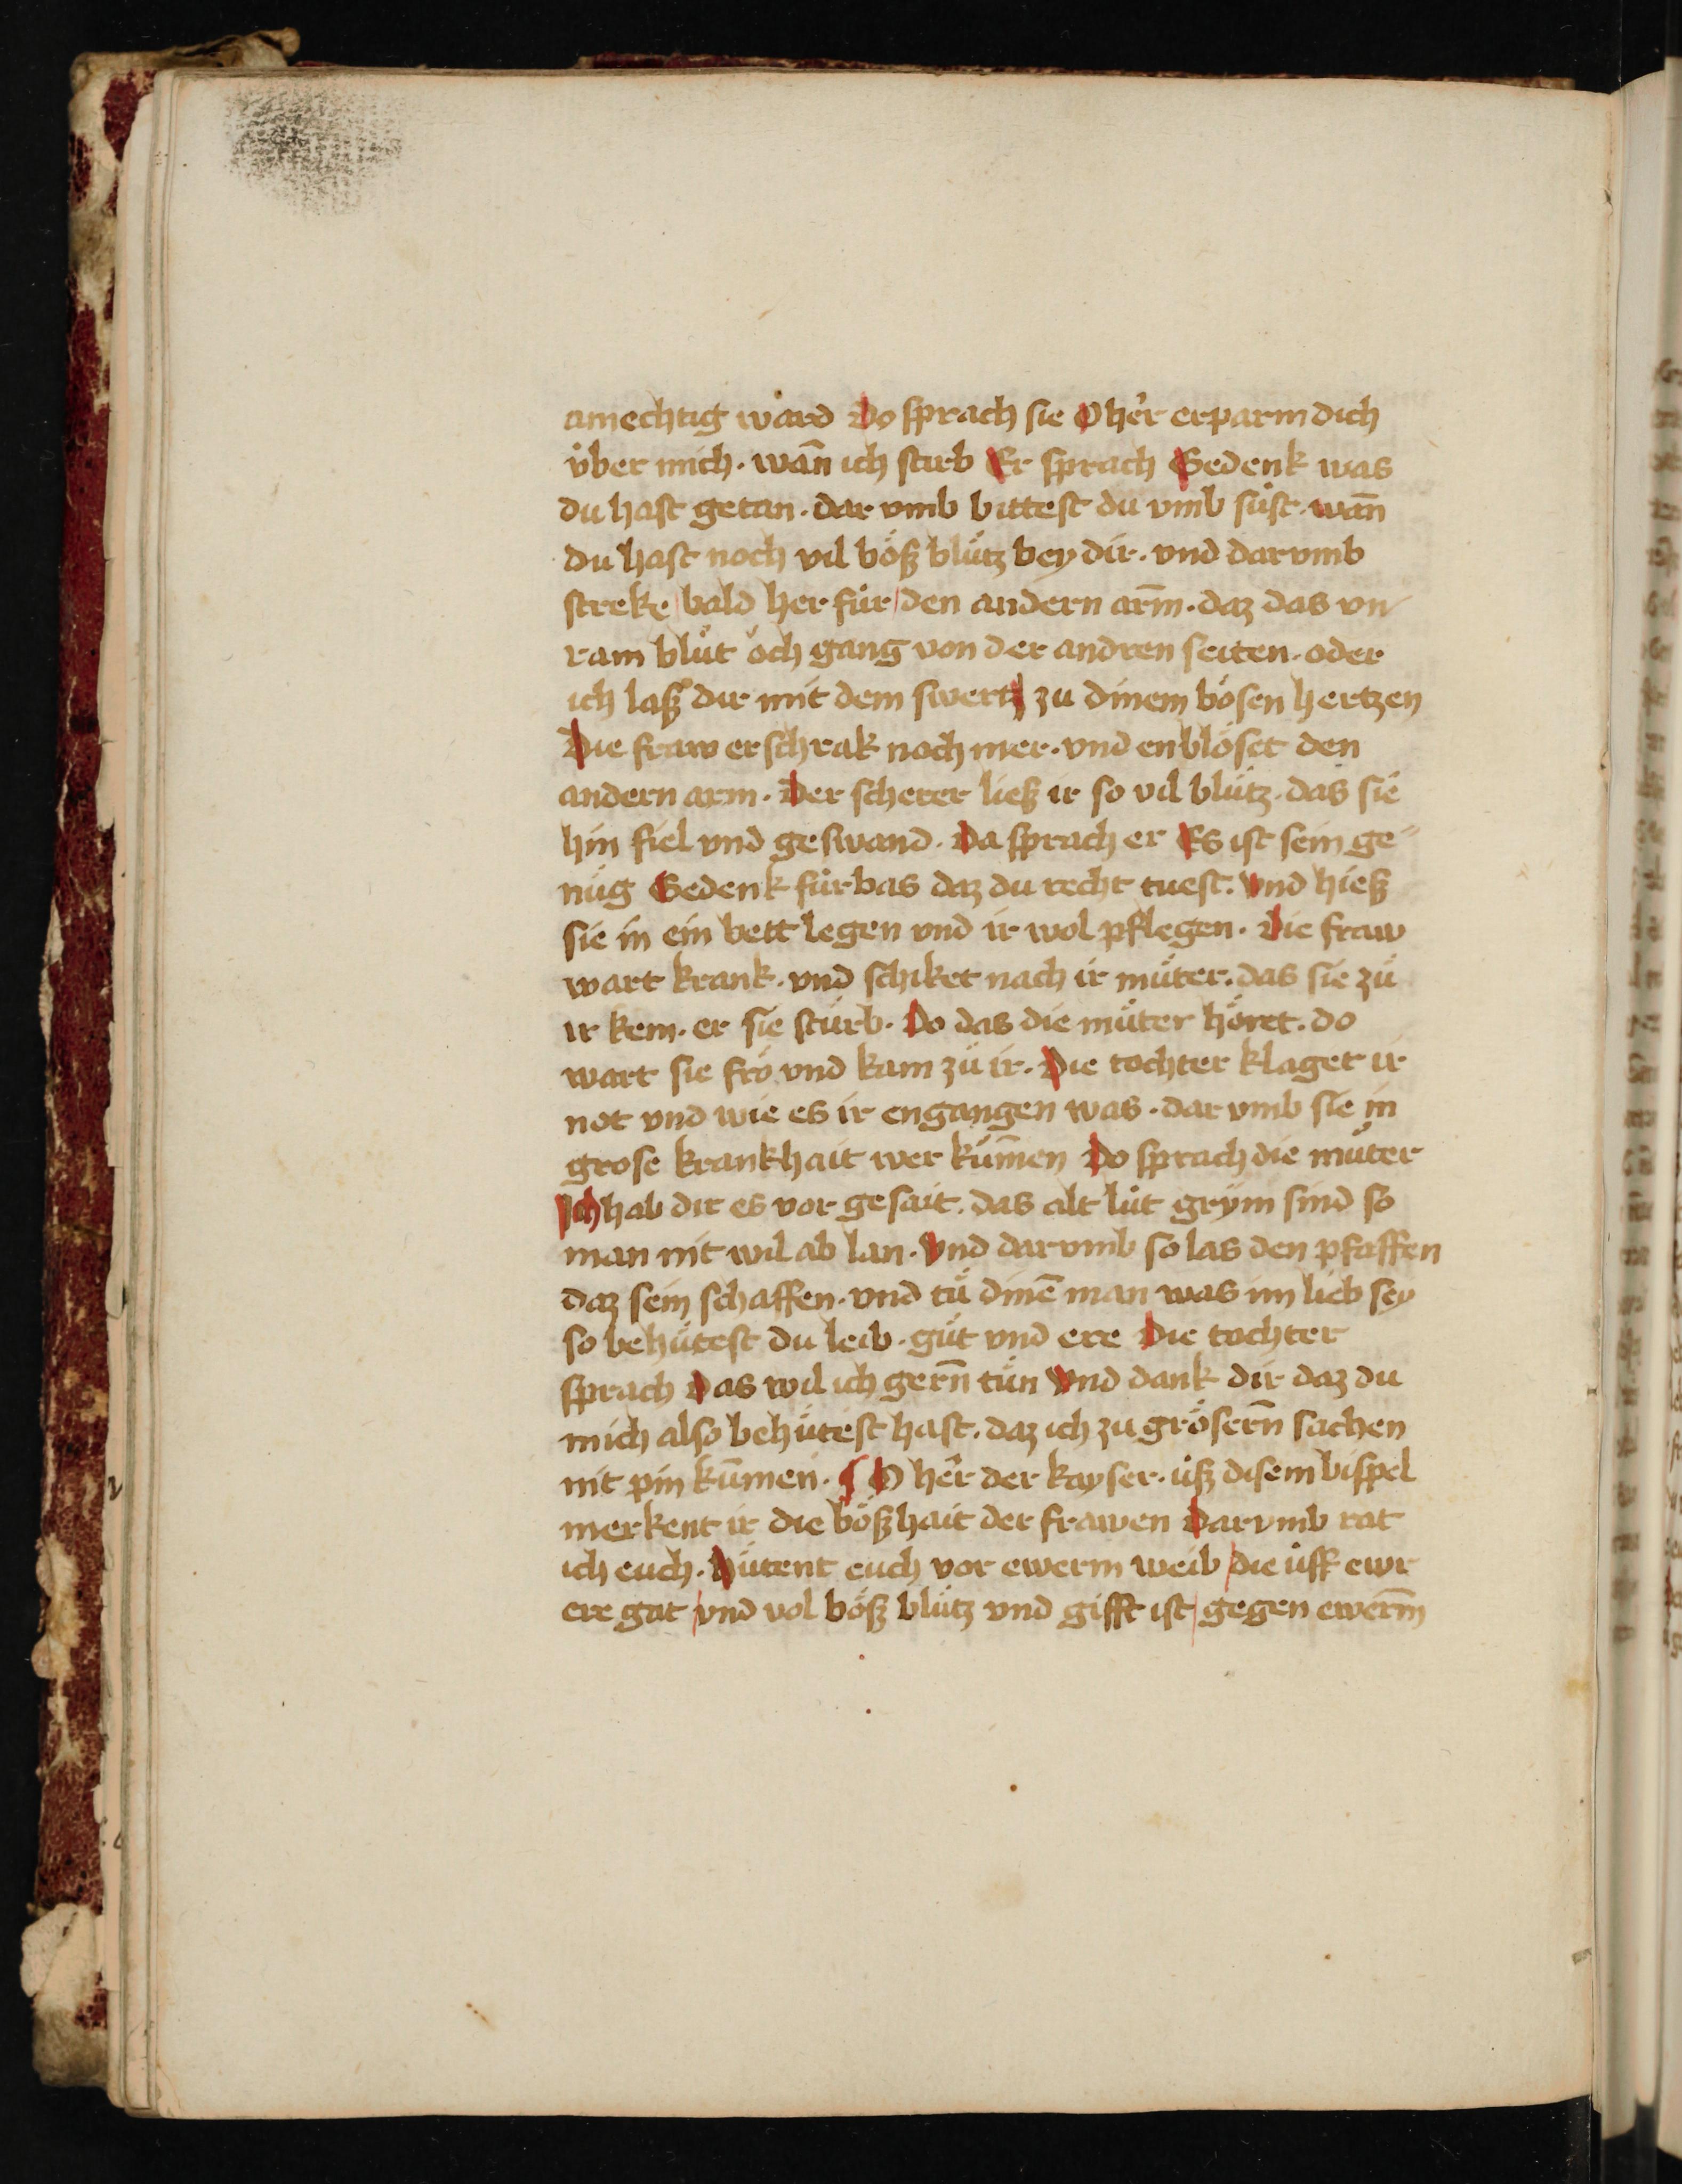 amechtig ward Do sprach sie O her erparm dich
v̈ber mich · wan̄ ich stirb Er sprach Gedenk was
du hast getan · dar vmb bittest du vmb süst · wan̄
du hast noch vil böß blütz bey dir · vnd dar vmb
streke bald her für den andern arm̄ · daz das vn
ram blüt öch gang von der andren seiten · oder
ich laß dir mit dem swertz zu dinem bösen hertzen
Die fraw erschrak noch mer · vnd enblöset den
andern arm · Der scherer ließ ir so vil blütz · das sie
hin fiel vnd geswand · Da sprach er Es ist sein ge-
nüg Gedenk fürbas daz du recht tuest · Vnd hieß
sie in ein bett legen vnd ir wol pflegen · Die fraw
wart krank · vnd schiket nach ir müter · das sie zü
ir kem · er sie stürb · Do das die müter höret · do
wart sie frö vnd kam zü ir · Die tochter klaget ir
not vnd wie es ir engangen was · dar vmb sie in
grose krankhait wer kum̄en Do sprach die müter
Ich hab dir es vor gesait · das alt lüt grym sind so
man nit wil ab lan · Vnd dar vmb so las den pfaffen
daz sein schaffen · vnd tü dinē man was im lieb sey
so behütest du leib · güt vnd ere Die tochter
sprach Das wil ich gern̄ tün Vnd dank dir daz du
mich also behütest hast · daz ich zu grösern̄ sachen
nit pin kum̄en · ¶ O her der kayser · üß disem bispel
merkent ir die bößhait der frawen Dar vmb rat
ich euch · Hütent euch vor ewerm weib die üff ewr
ere gat vnd vol böß blütz vnd gifft ist gegen ewerm̄